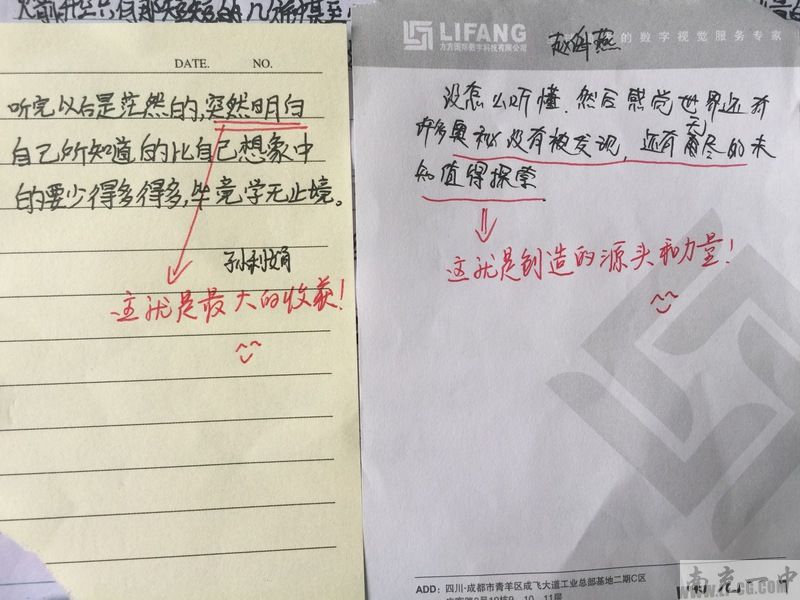 DATE. NO.
听完以后是茫然的,突然明白
自己所知道的比自己想象中
的要少得多得多,毕竟学无止境。
孙利娟
这就是最大的收获!
LIFANG
力方国际数字科技有限公司
的数字视觉服务专家
赵科燕
没怎么听懂.然后感觉世界还有
许多奥秘没有被发现,还有无尽的未
知值得探索.
这就是创造的源头和力量!
ADD: 四川·成都市青羊区成飞大道工业总部基地二期C区
9、10、11层
南充一中